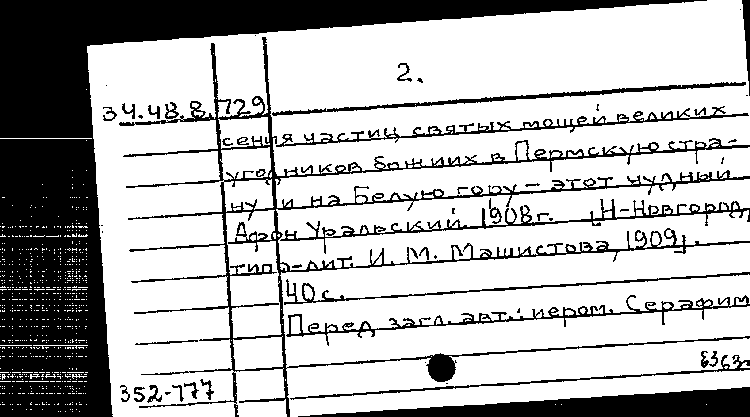 2.
34.48.8.729
сения частиц святых мощей великих
угодников божиих в Пермскую стра-
ну и на Белую гору - этот чудный
Афон Уральский. 1908г. [Н-Новгород,
типо-лит. И. М. Машистова, 1909].
40 с.
Перед загл. авт.: иером. Серафим
352-777